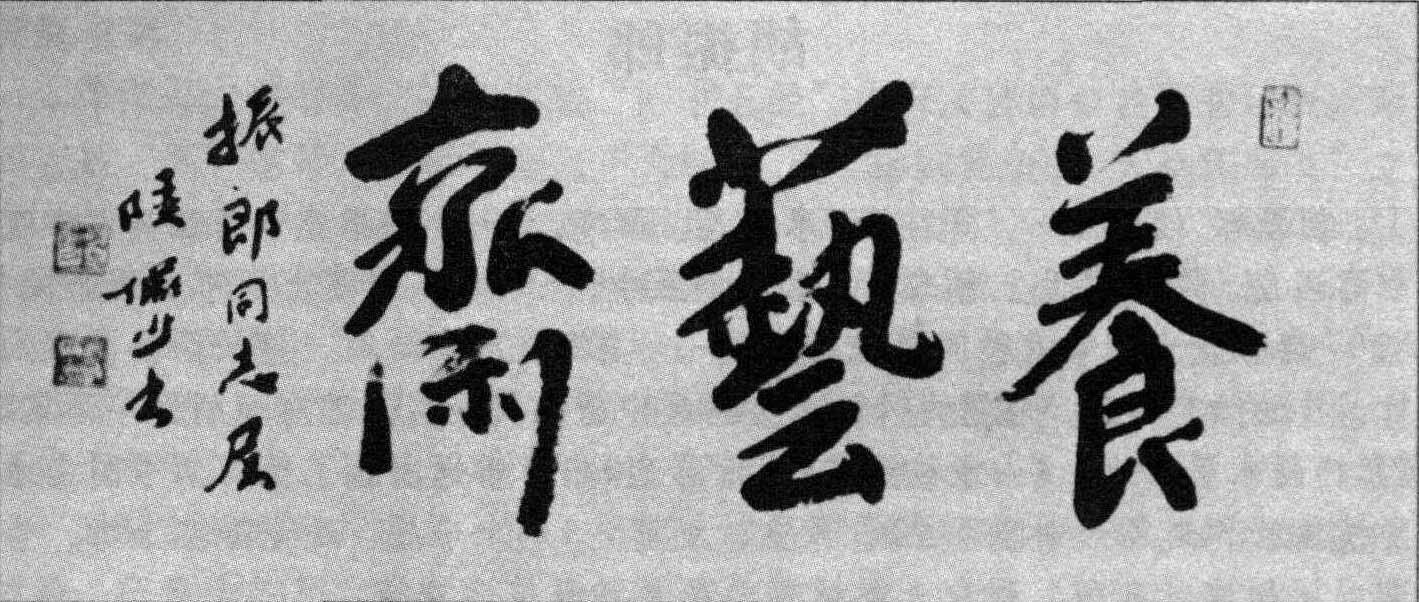 養藝齋
振郎同志屬
陸儼少書